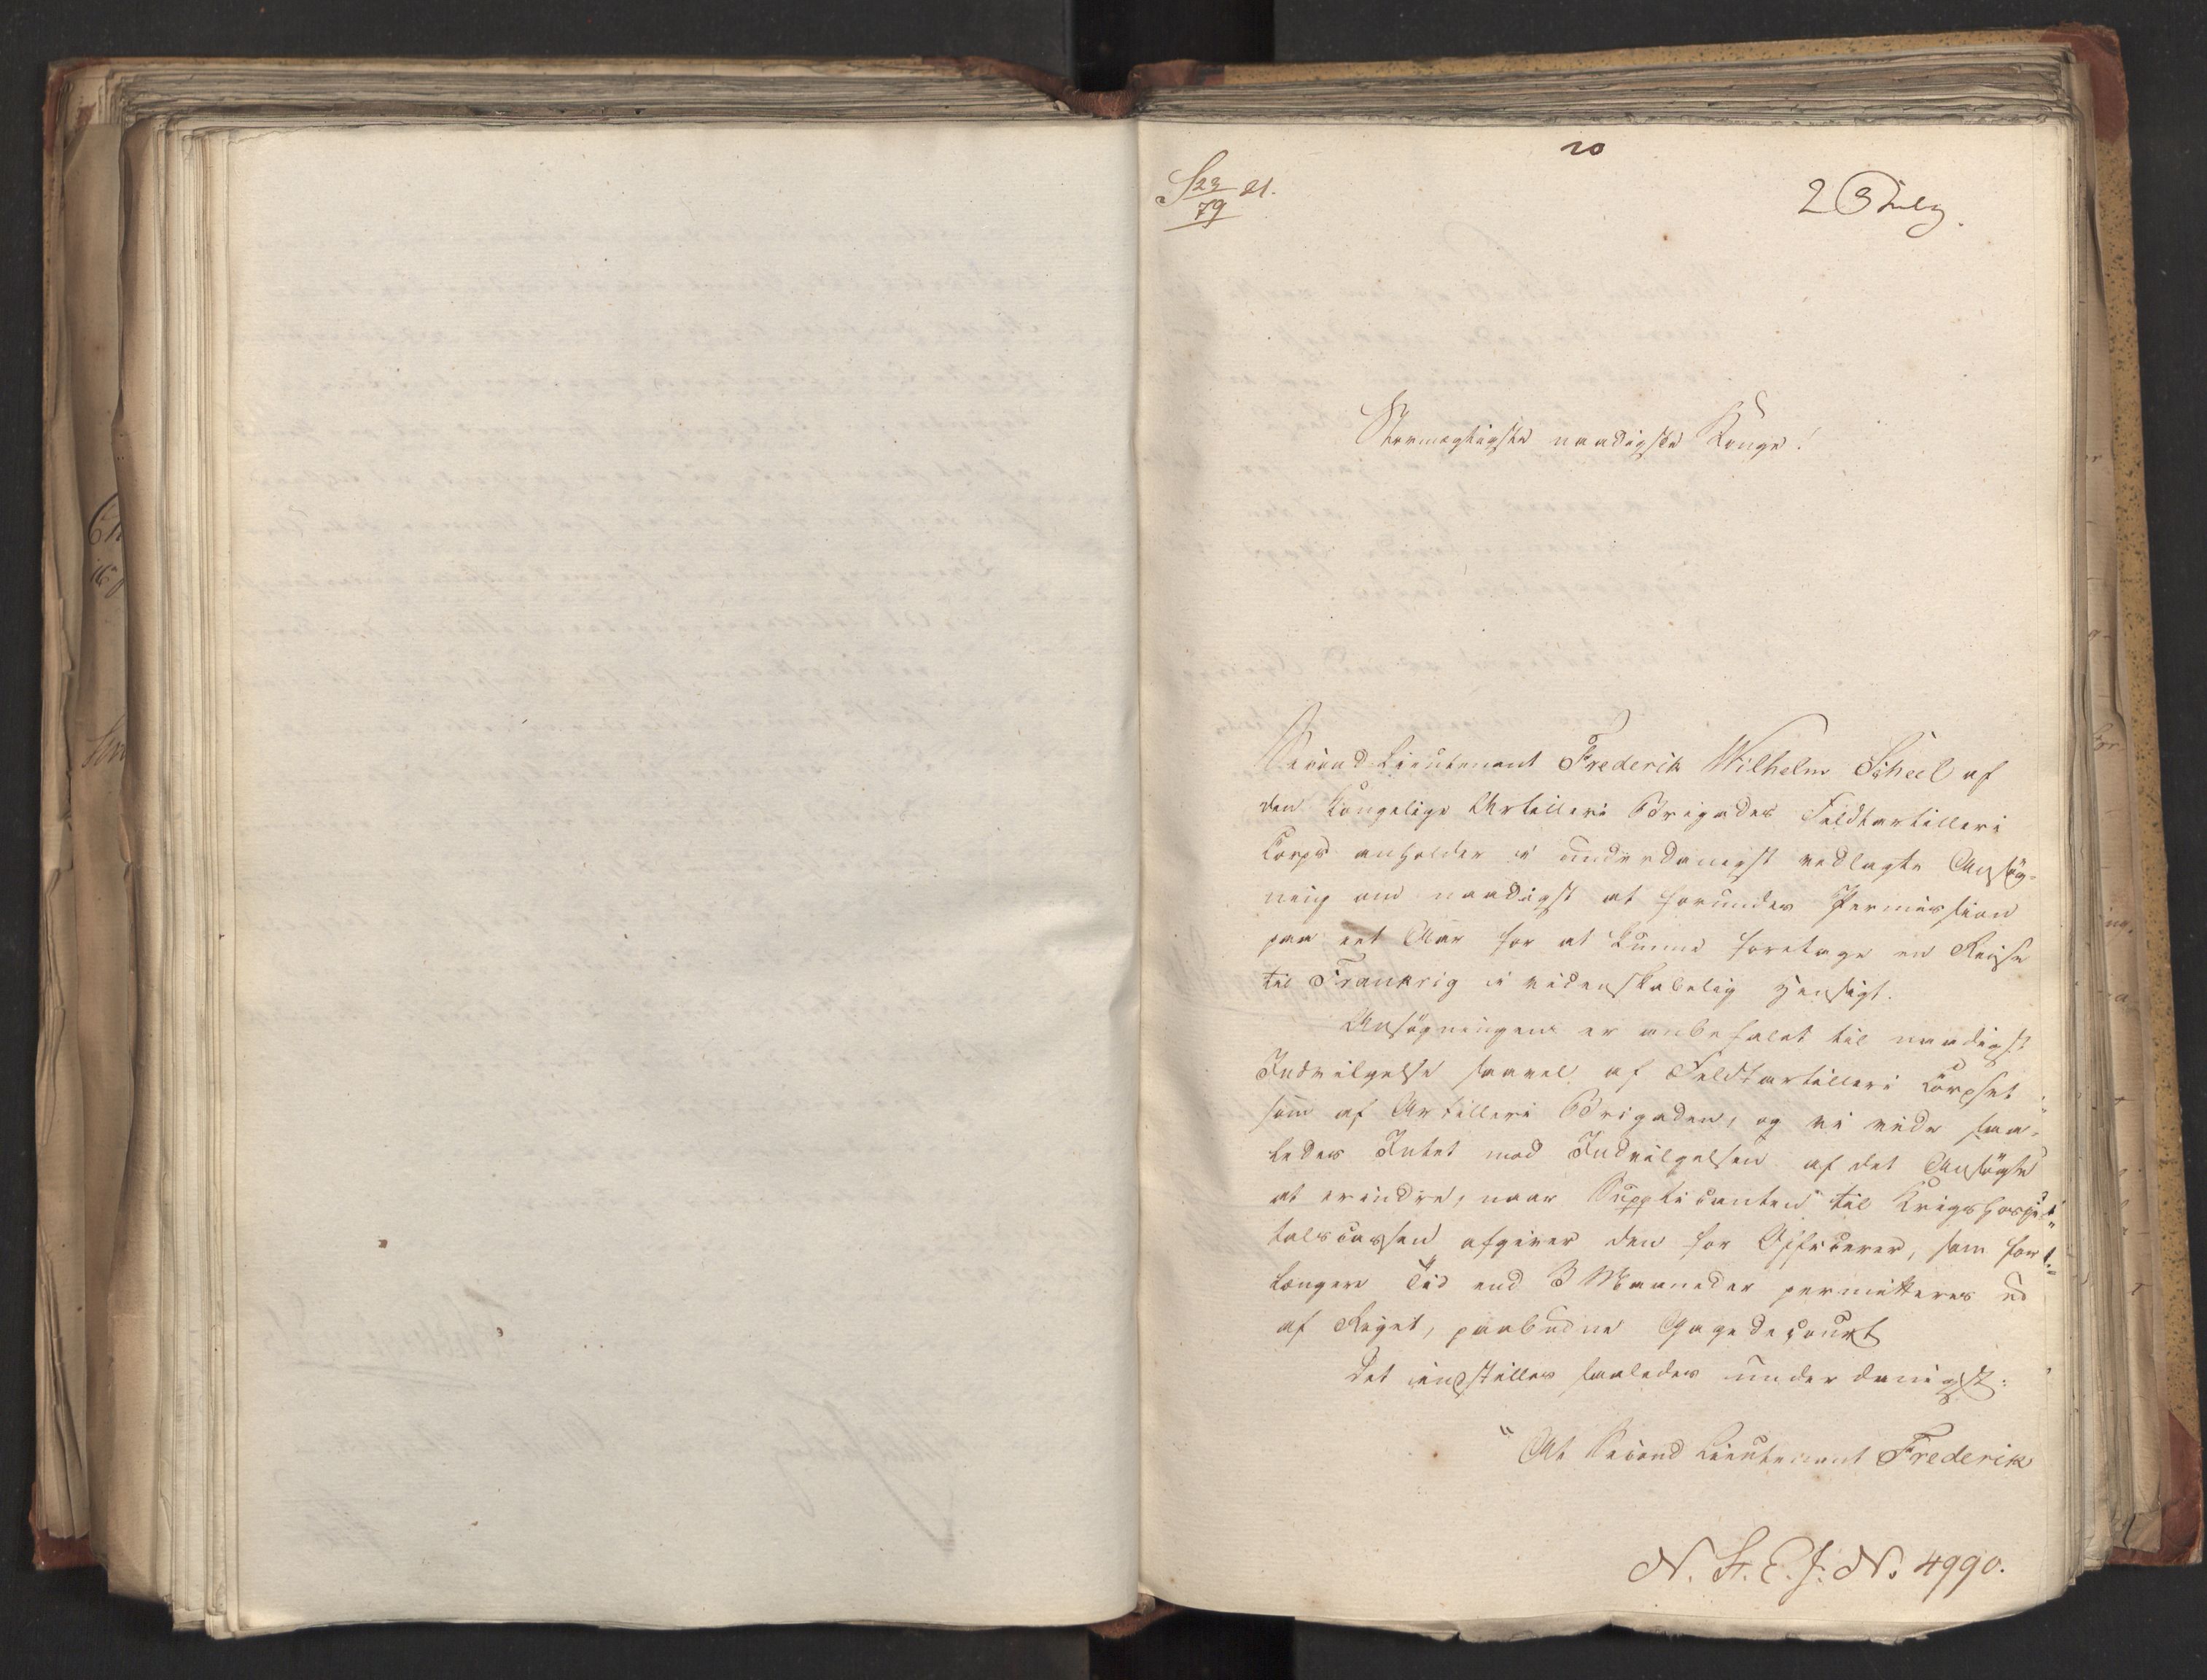 20
S 23/79 21.
23 July.
Stormægtigste naadigste Konge!
Second-Lieutenant Frederik Wilhelm Scheel af
den kongelige Artilleri Brigades Feldtartilleri
Corps anholder i underdanigst vedlagte Ansög-
ning om naadigst at forundes Permission
paa eet Aar for at kunne foretage en Reise
til Frankrig i videnskabelig Hensigt.
Ansögningen er anbefalet til naadigst
Indvilgelse saavel af Feldtartilleri Corpset
som af Artilleri Brigaden, og vi vide saa-
ledes Intet mod Indvilgelsen af det Ansögte
at erindre, naar Supplicanten til Krigshospi-
talscassen afgiver den for Officerer, som for
længere Tid end 3 Maaneder permitteres ud
af Riget, paabudne Gagedecourt
Det indstilles saaledes underdanigst:
"At Second Lieutenant Frederik
N. St. E. J. N. 4990.